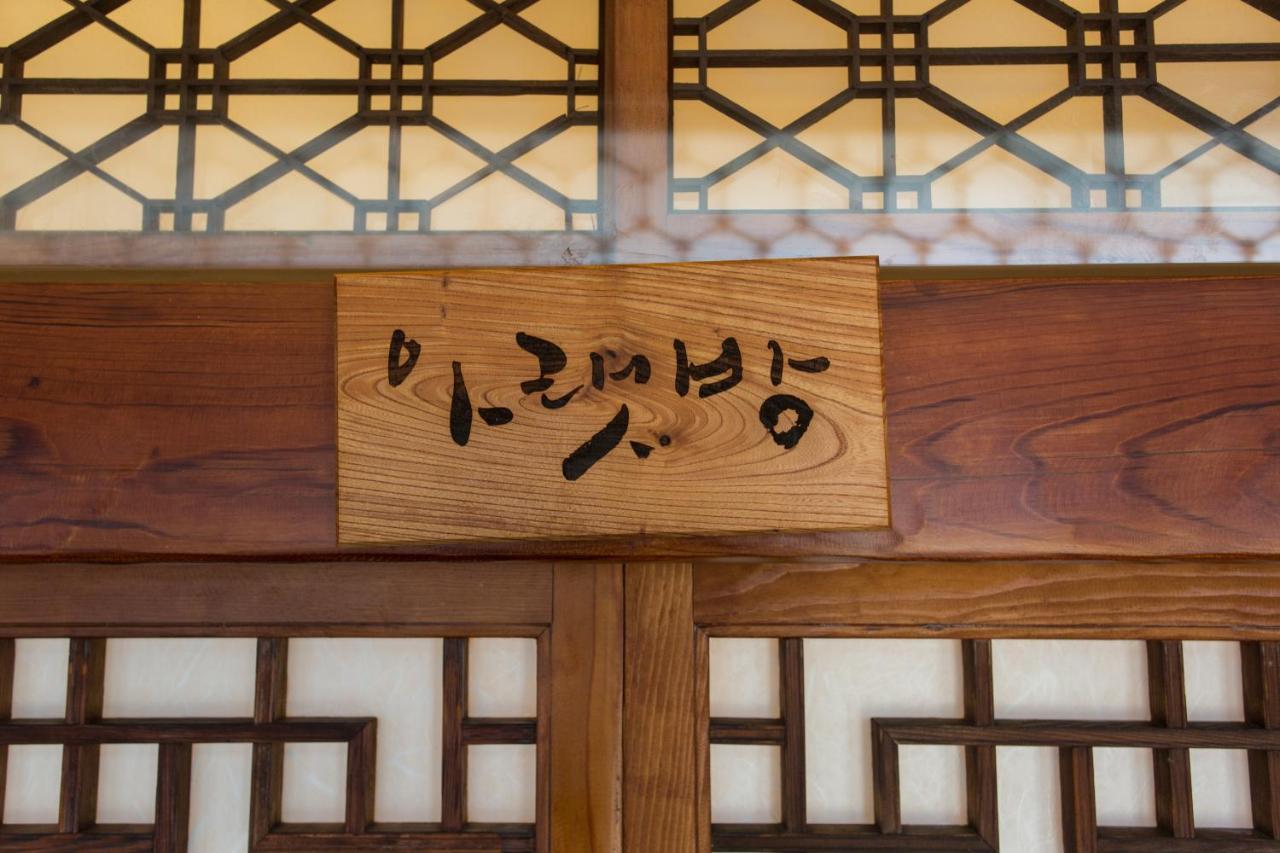 아랫방